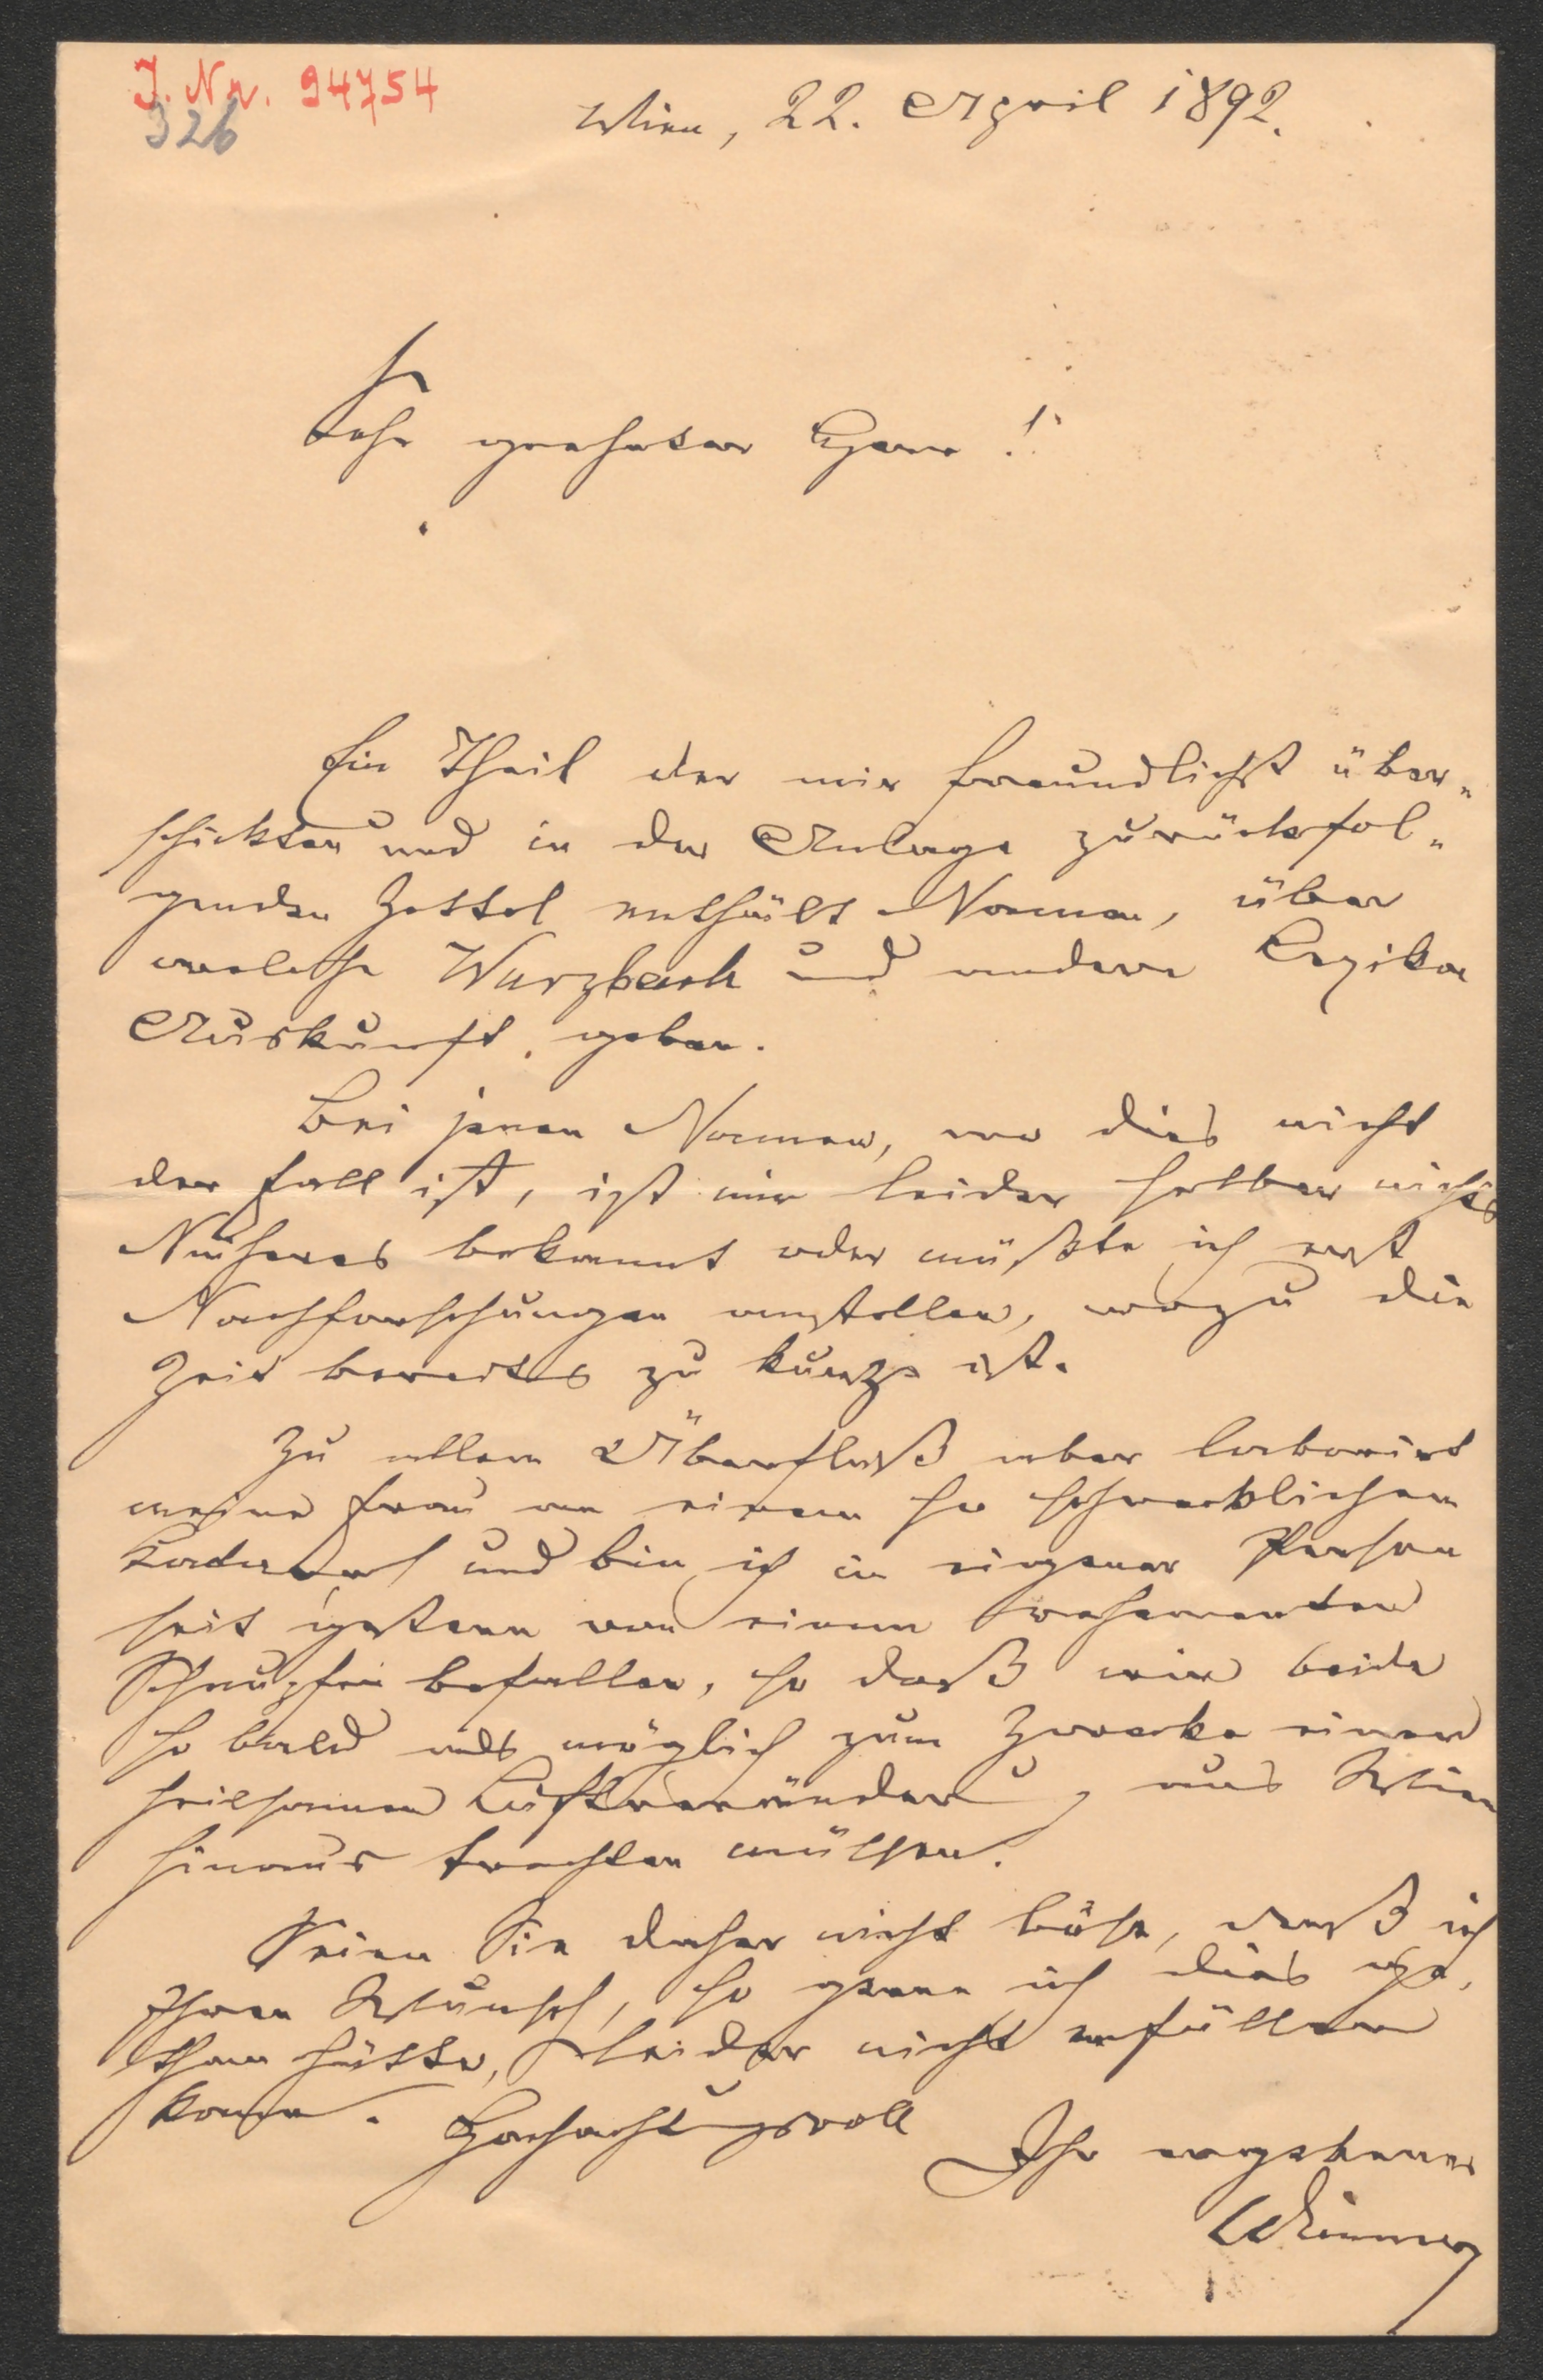 J. Nr. 94754
326
Wien, 22. April 1892.
Sehr geehrter Herr!
Ein Theil der mir freundlichst über-
schickten und in der Anlage zurückfol-
genden Zettel enthält Namen, über
welche Wurzbach und andere Lexika
Auskunft geben.
Bei jenen Namen, wo dies nicht
der Fall ist, ist mir leider selber nichts
Näheres bekannt oder müßte ich erst
Nachforschungen anstellen, wozu die
Zeit bereits zu kurz ist.
Zu allem Überfluß aber laborirt
meine Frau an einem so schrecklichen
Katarrh und bin ich in eigener Person
seit gestern von einem vehementen
Schnupfen befallen, so daß wir beide
so bald als möglich zum Zwecke einer
heilsamen Luftveränderung aus Wien
hinaus trachten müssen.
Seien Sie daher nicht böse, daß ich
Ihren Wunsch, so gerne ich dies ge-
than hätte, leider nicht erfüllen
kann. Hochachtungsvoll
Ihr ergebener